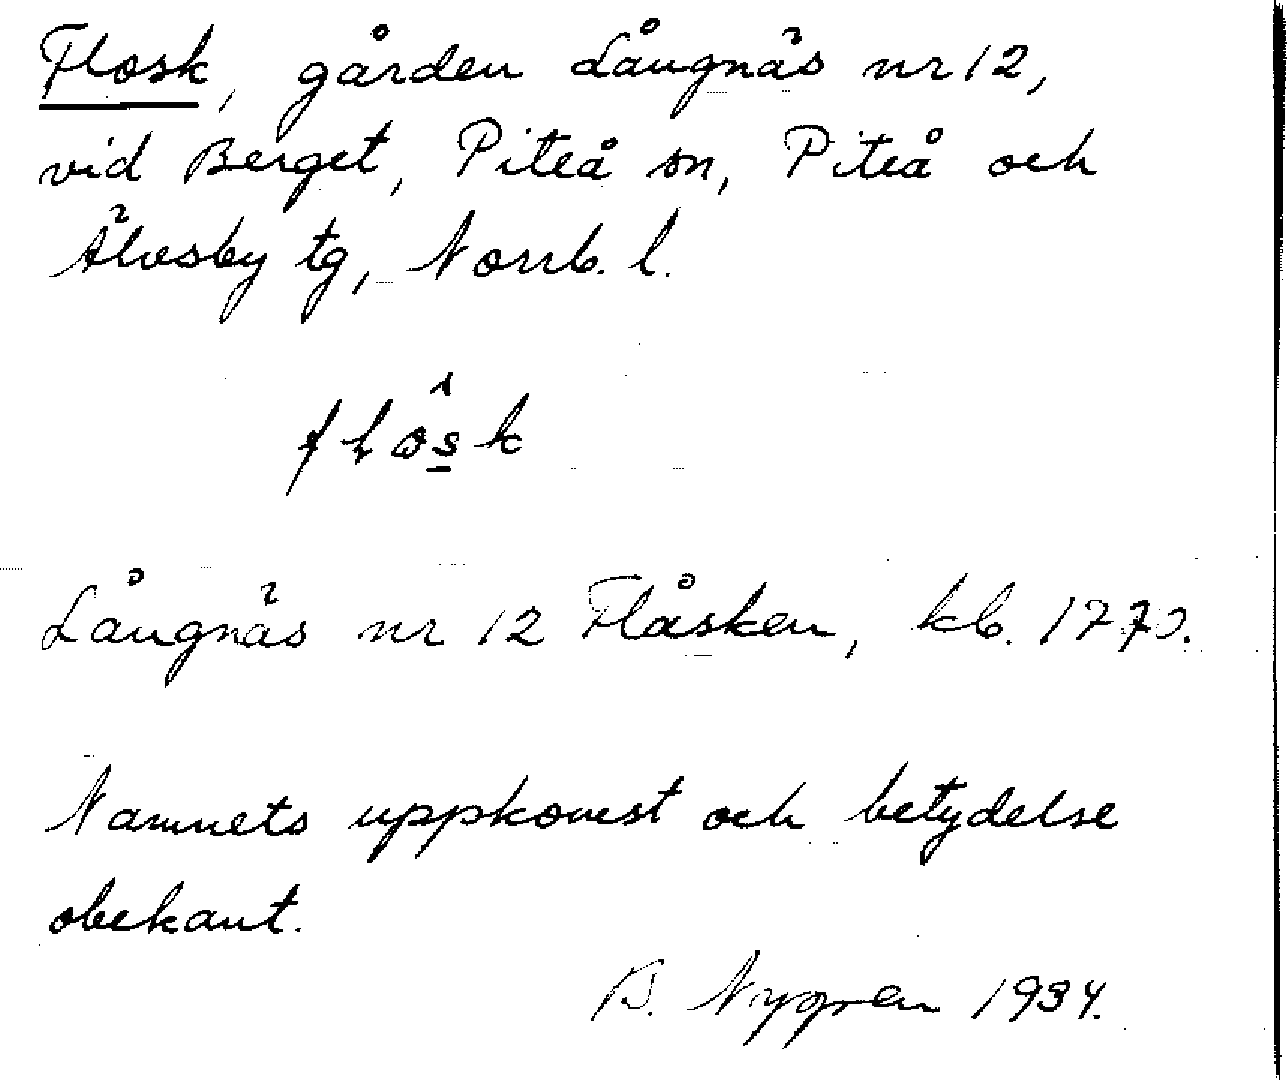 Flosk, gården Långnäs nr 12,
vid Berget, Piteå sn, Piteå och
Älvsby tg, Norrb. l.
Långnäs nr 12 Flåsken, kb. 1770.
Namnets uppkomst och betydelse
obekant.
B. Nygren 1934.